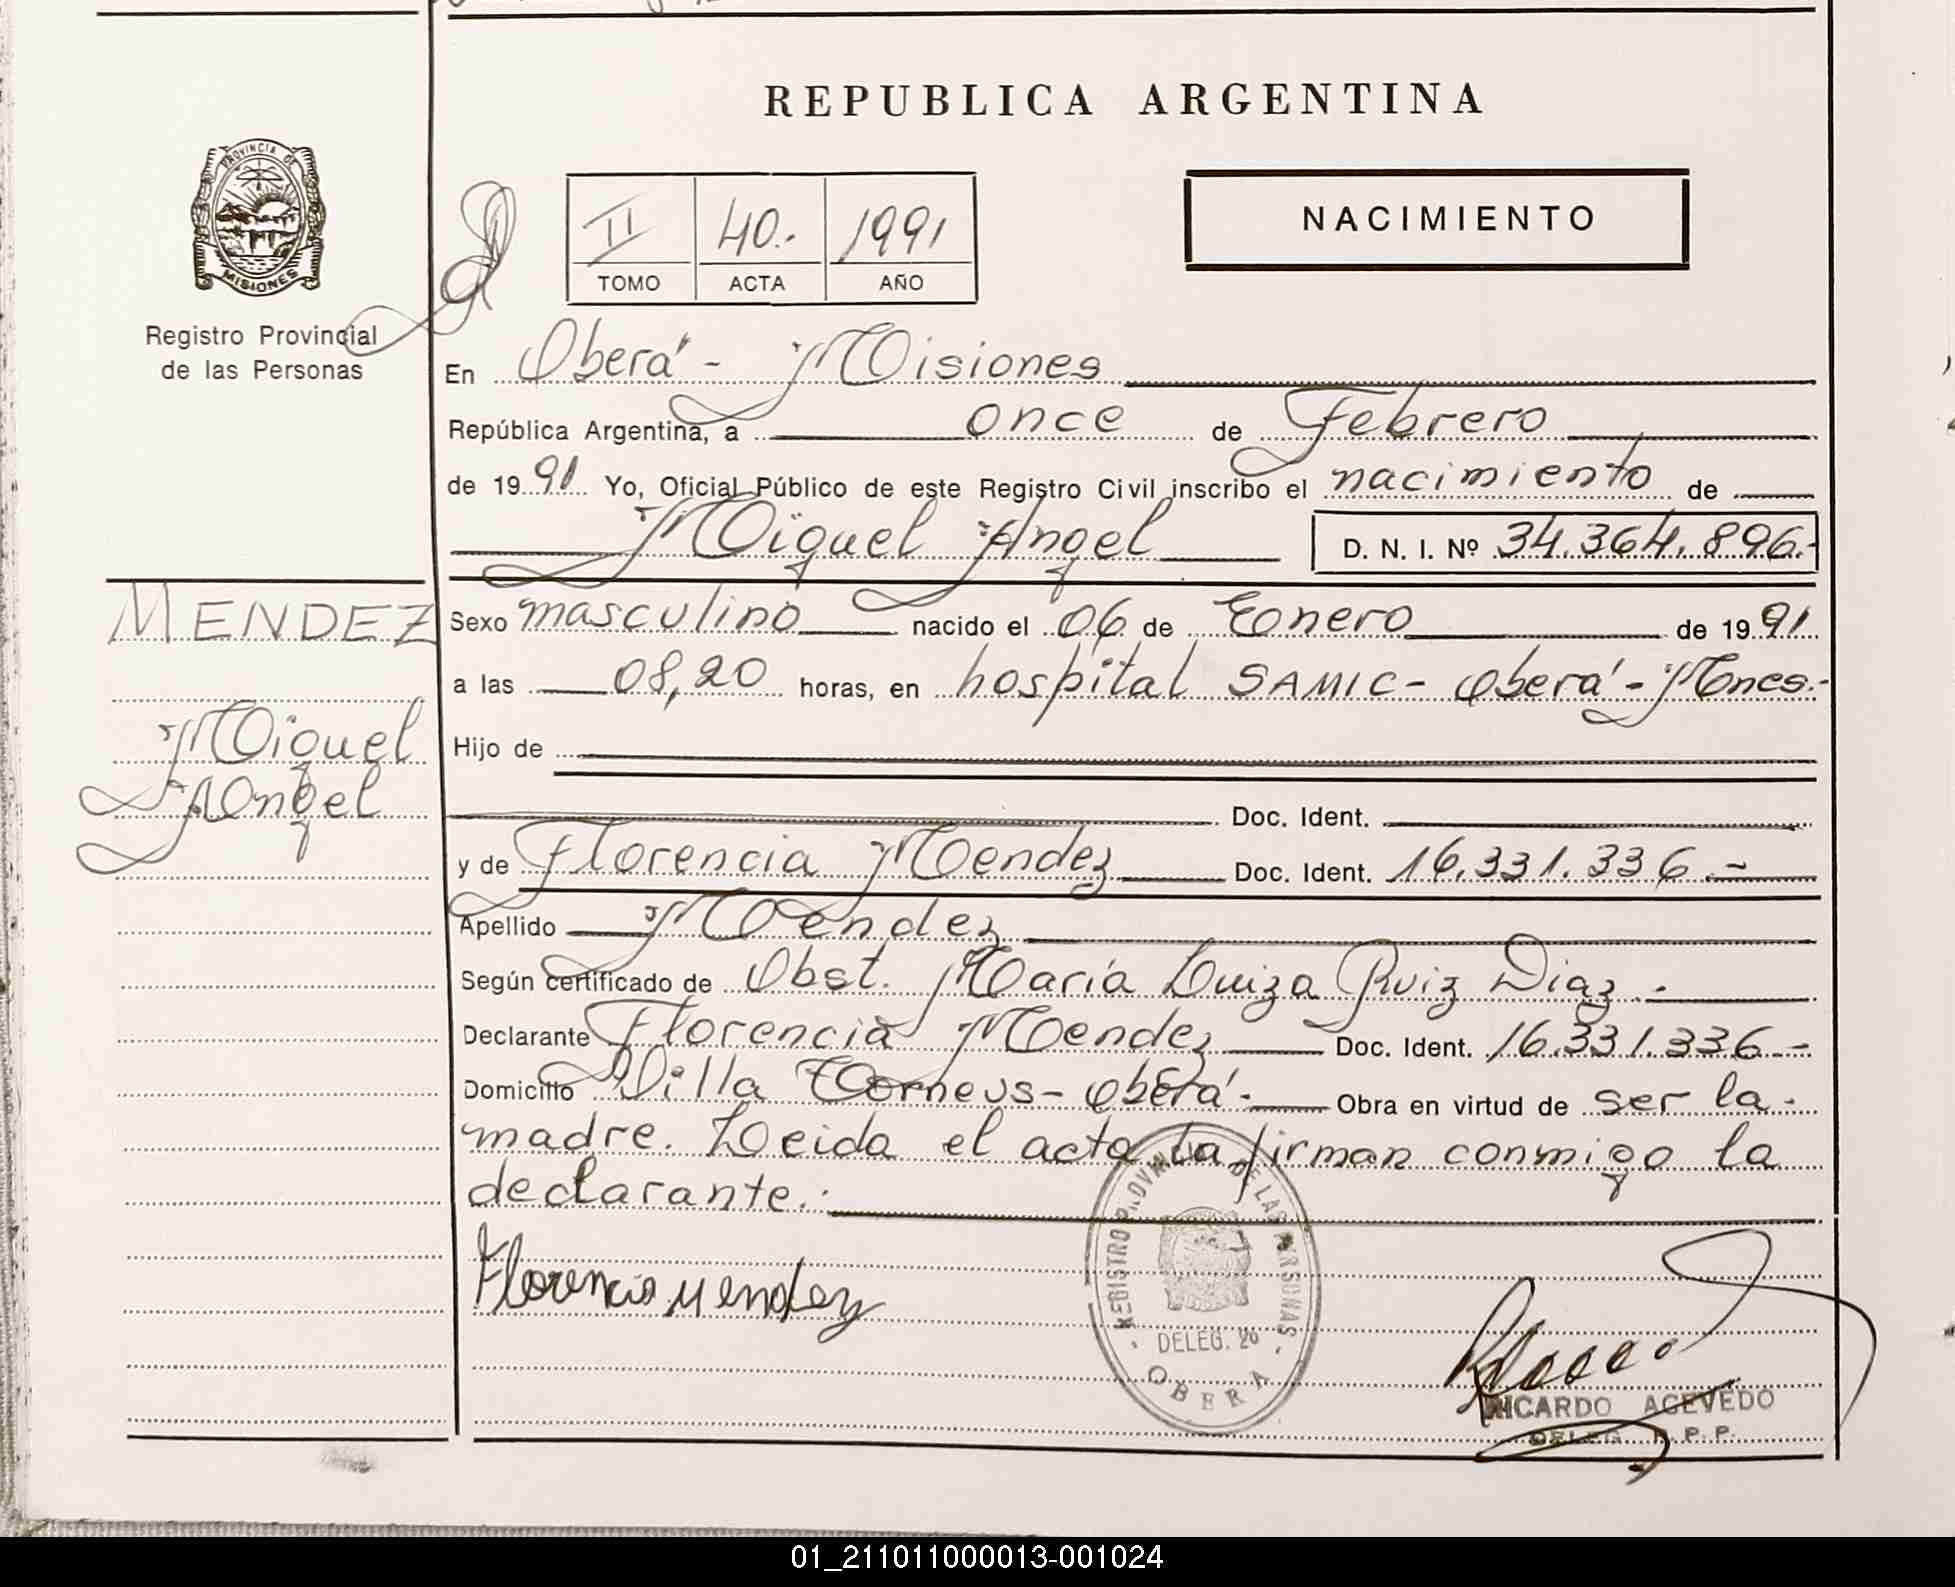 REPUBLICA ARGENTINA
PROVINCIA DE
MISIONES
Registro Provincial
de las Personas
II 40.- 1991
TOMO ACTA AÑO
NACIMIENTO
En Oberá - Misiones
República Argentina, a once de Febrero
de 1991 Yo, Oficial Público de este Registro Civil inscribo el nacimiento de
Miguel Angel D. N. I. Nº 34.364.896.-
MENDEZ
Miguel
Angel
Sexo masculino nacido el 06 de Enero de 1991
a las 08,20 horas, en hospital SAMIC - Oberá - Mnes.-
Hijo de
Doc. Ident.
y de Florencia Mendez Doc. Ident. 16.331.336.-
Apellido Mendez
Según certificado de Obst. María Luiza Ruiz Diaz.-
Declarante Florencia Mendez Doc. Ident. 16.331.336-
Domicilio Villa Torneus - Oberá.- Obra en virtud de ser la
madre. Leida el acta la firman conmigo la
declarante.-
Florencia Mendez
REGISTRO PROVINCIAL DE LAS PERSONAS
DELEG. 26
OBERA
RICARDO ACEVEDO
DELEG. R. P. P.
01_211011000013-001024